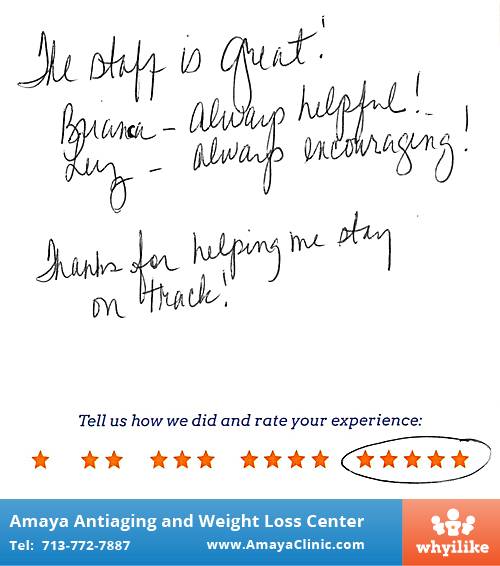 The staff is great!
Briana - always helpful!
Luz - always encouraging!
Thanks for helping me stay
on track!
Tell us how we did and rate your experience:
Amaya Antiaging and Weight Loss Center
Tel: 713-772-7887 www.AmayaClinic.com
whyilike